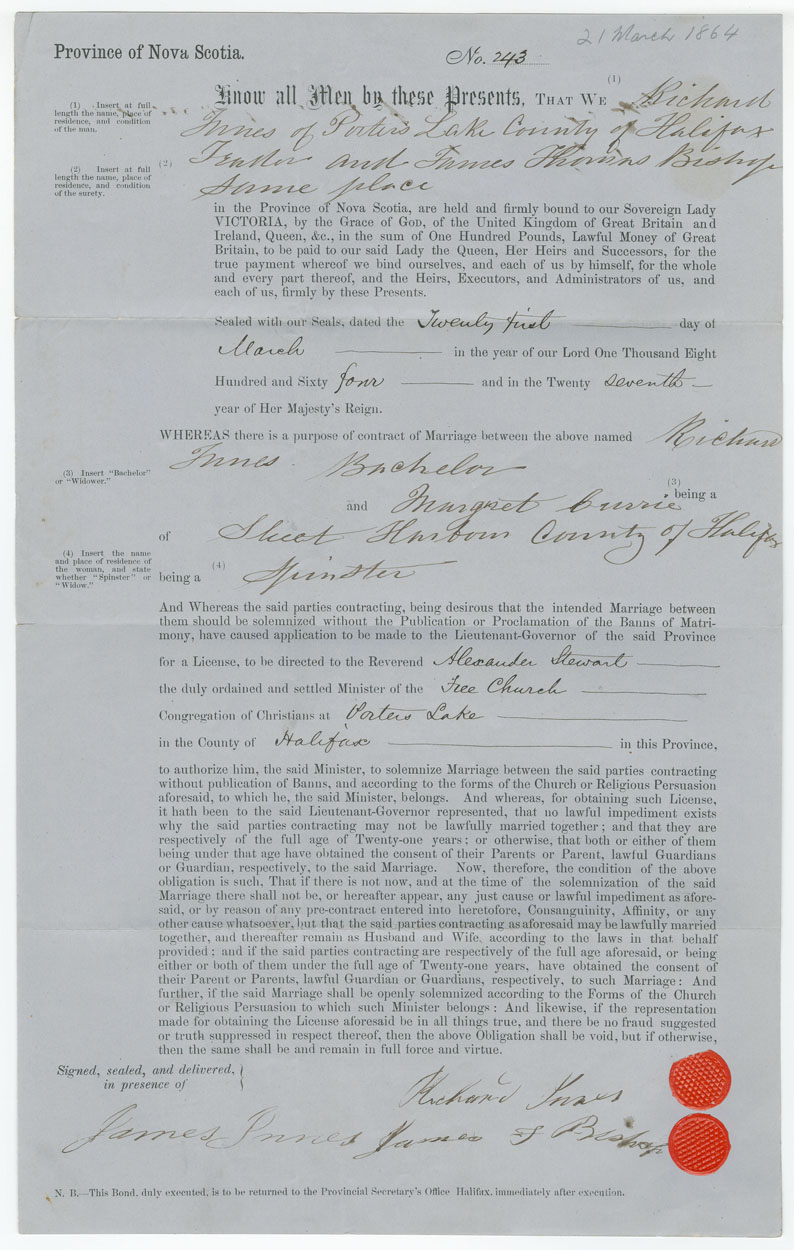 21 March 1864
Province of Nova Scotia.
No. 243
(1)
Know all Men by these Presents, THAT WE Richard
(1) Insert at full
length the name, place of
residence, and condition
of the man.
Innes of Porters Lake County of Halifax
(2) Insert at full
length the name, place of
residence, and condition
of the surety.
(2)
Trador and James Thomas Bishop
Same place
in the Province of Nova Scotia, are held and firmly bound to our Sovereign Lady
VICTORIA, by the Grace of GOD, of the United Kingdom of Great Britain and
Ireland, Queen, &c., in the sum of One Hundred Pounds, Lawful Money of Great
Britain, to be paid to our said Lady the Queen, Her Heirs and Successors, for the
true payment whereof we bind ourselves, and each of us by himself, for the whole
and every part thereof, and the Heirs, Executors, and Administrators of us, and
each of us, firmly by these Presents.
Sealed with our Seals, dated the Twenty first day of
March in the year of our Lord One Thousand Eight
Hundred and Sixty four and in the Twenty seventh
year of Her Majesty's Reign.
WHEREAS there is a purpose of contract of Marriage between the above named Richard
Innes. Bachelor
(3) Insert "Bachelor"
or "Widower."
(3)
being a
and Margret Currie
of Sheet Harbour County of Halifax
(4) Insert the name
and place of residence of
the woman, and state
whether "Spinster" or
"Widow."
being a (4) Spinster
And Whereas the said parties contracting, being desirous that the intended Marriage between
them should be solemnized without the Publication or Proclamation of the Banns of Matri-
mony, have caused application to be made to the Lieutenant-Governor of the said Province
for a License, to be directed to the Reverend Alexander Stewart
the duly ordained and settled Minister of the Free Church
Congregation of Christians at Porters Lake
in the County of Halifax in this Province,
to authorize him, the said Minister, to solemnize Marriage between the said parties contracting
without publication of Banns, and according to the forms of the Church or Religious Persuasion
aforesaid, to which he, the said Minister, belongs. And whereas, for obtaining such License,
it hath been to the said Lieutenant-Governor represented, that no lawful impediment exists
why the said parties contracting may not be lawfully married together; and that they are
respectively of the full age of Twenty-one years; or otherwise, that both or either of them
being under that age have obtained the consent of their Parents or Parent, lawful Guardians
or Guardian, respectively, to the said Marriage. Now, therefore, the condition of the above
obligation is such, That if there is not now, and at the time of the solemnization of the said
Marriage there shall not be, or hereafter appear, any just cause or lawful impediment as afore-
said, or by reason of any pre-contract entered into heretofore, Consanguinity, Affinity, or any
other cause whatsoever, but that the said parties contracting as aforesaid may be lawfully married
together, and thereafter remain as Husband and Wife, according to the laws in that behalf
provided; and if the said parties contracting are respectively of the full age aforesaid, or being
either or both of them under the full age of Twenty-one years, have obtained the consent of
their Parent or Parents, lawful Guardian or Guardians, respectively, to such Marriage: And
further, if the said Marriage shall be openly solemnized according to the Forms of the Church
or Religious Persuasion to which such Minister belongs: And likewise, if the representation
made for obtaining the License aforesaid be in all things true, and there be no fraud suggested
or truth suppressed in respect thereof, then the above Obligation shall be void, but if otherwise,
then the same shall be and remain in full force and virtue.
Signed, sealed, and delivered,
in presence of
Richard Innes
James Innes James T Bishop
N. B.—This Bond, duly executed, is to be returned to the Provincial Secretary's Office Halifax, immediately after execution.